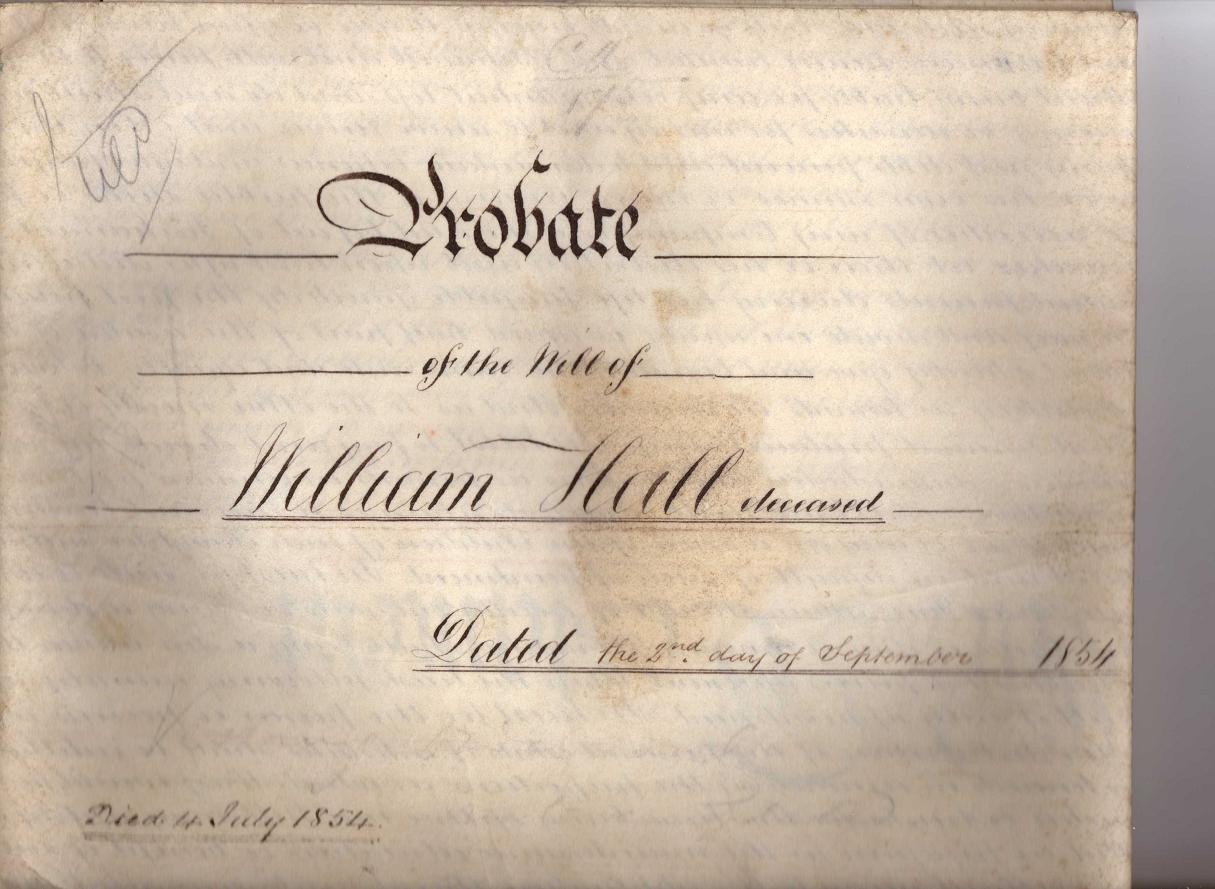 Probate
of the Will of
William Hall deceased
Dated the 2nd. day of September 1854
Died 4 July 1854.